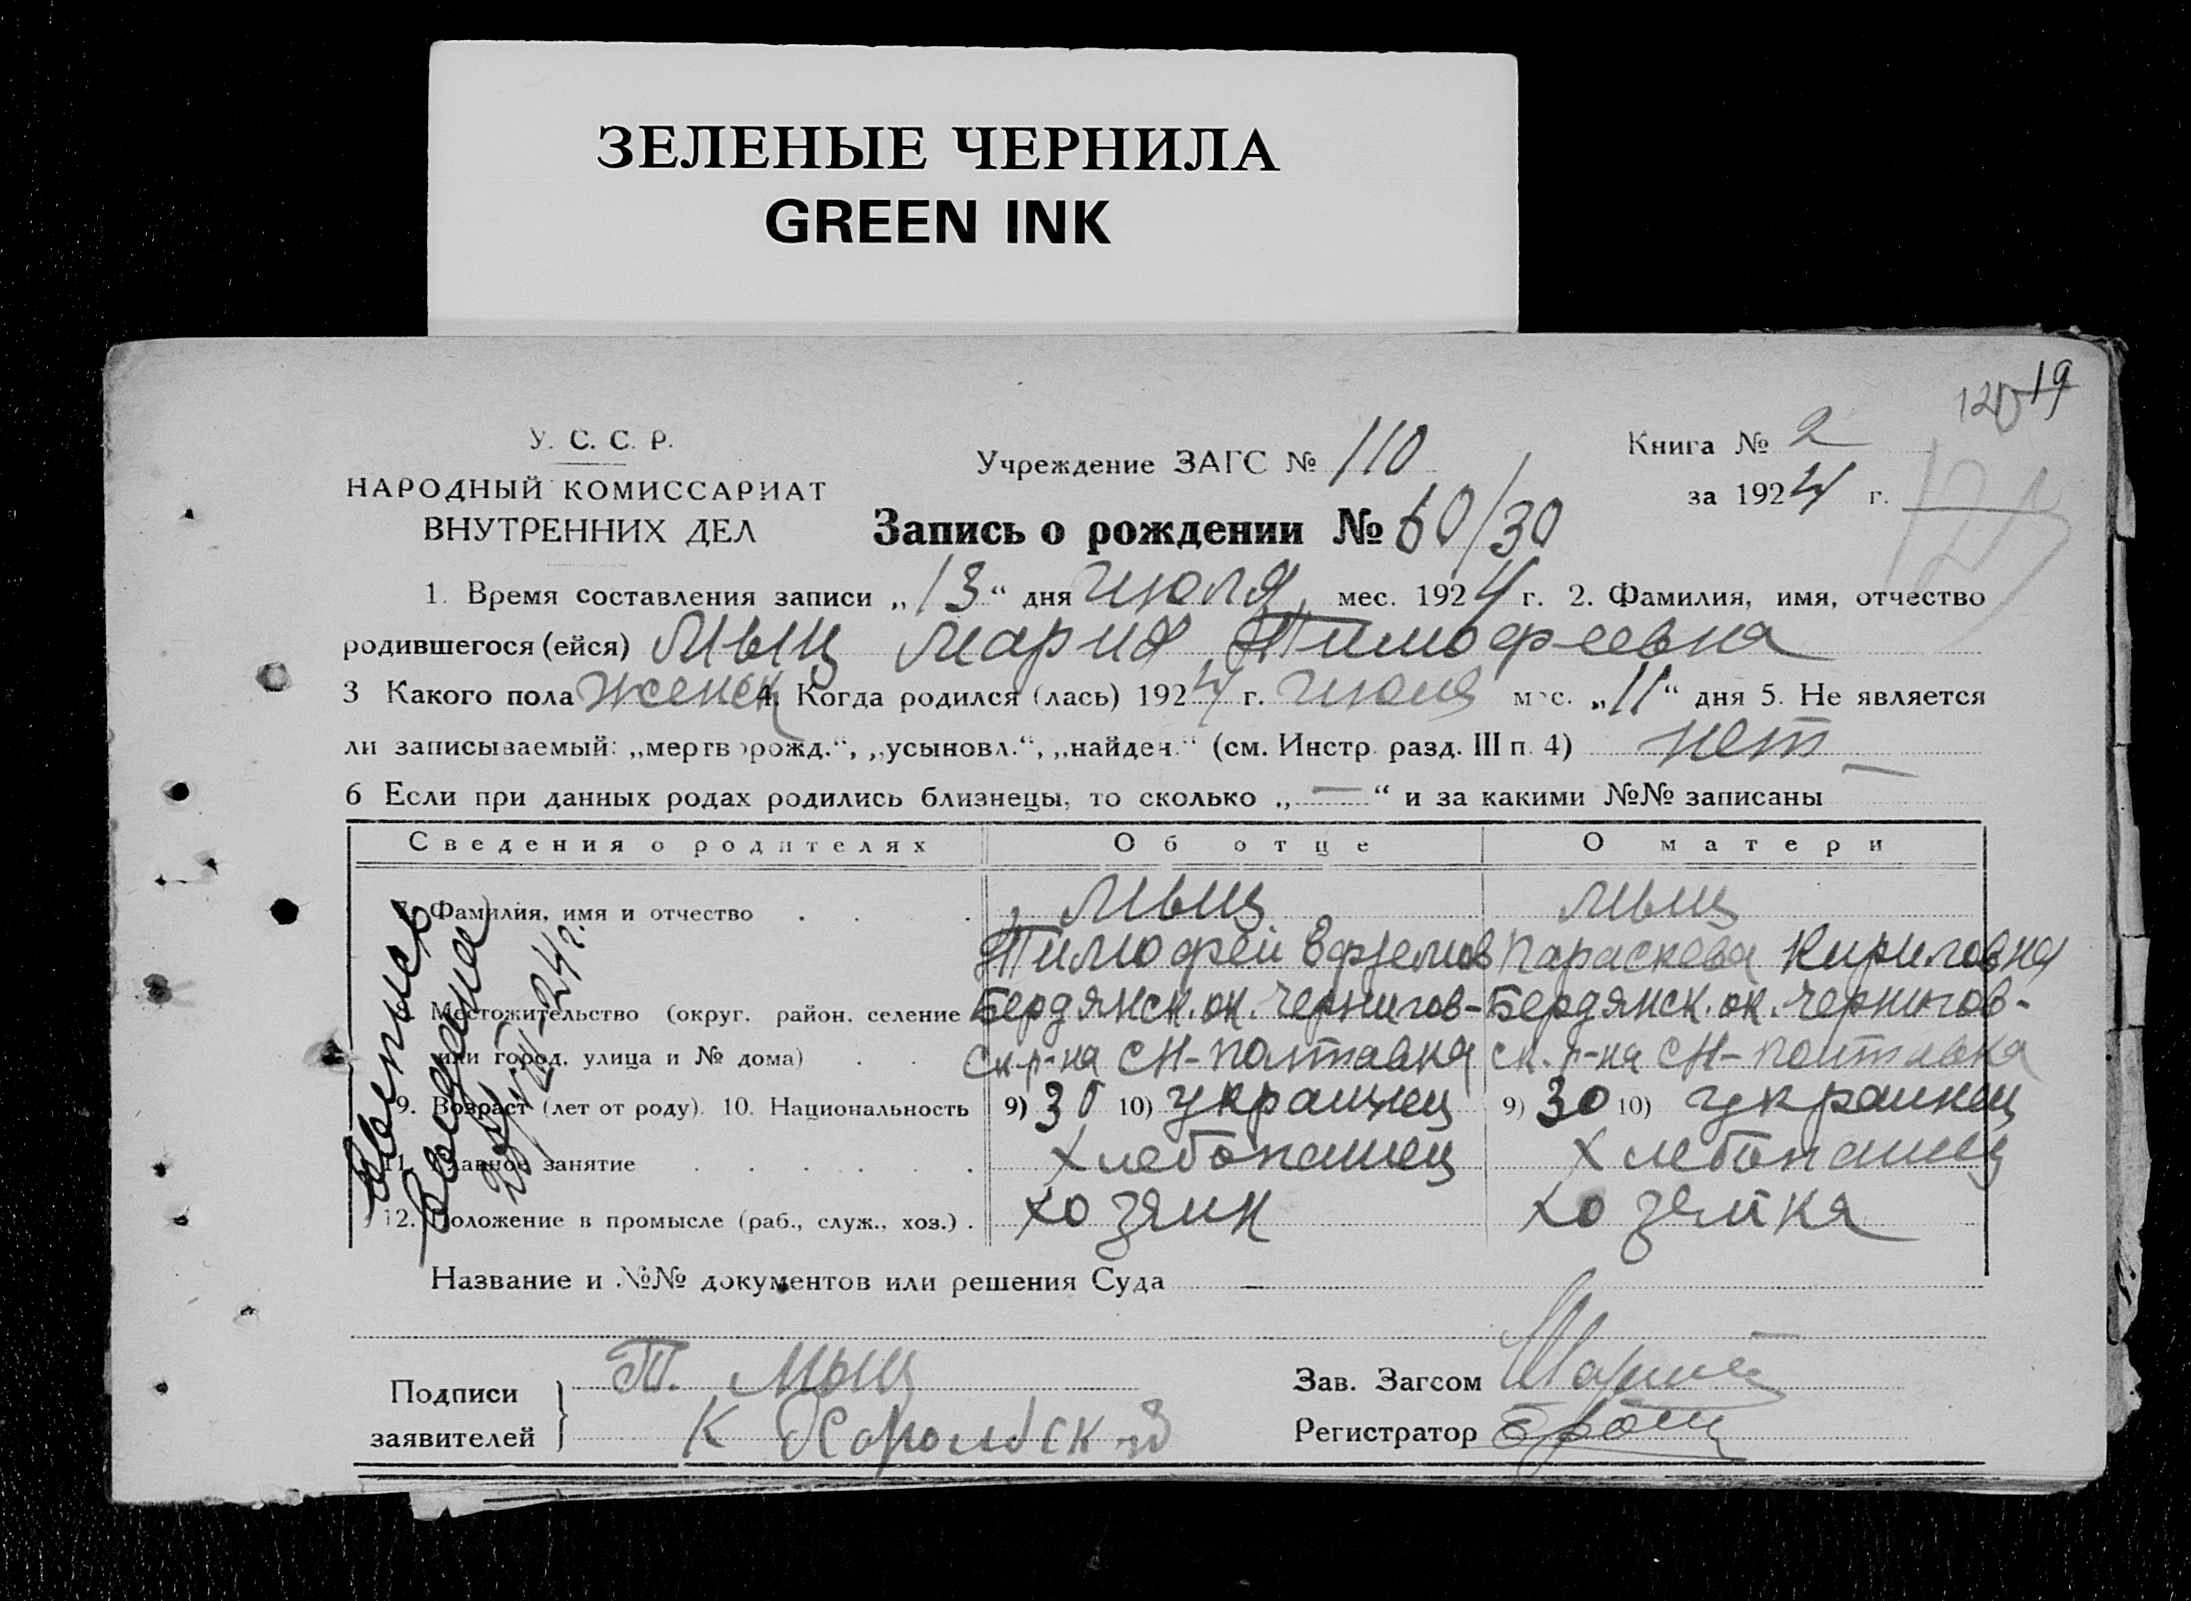 ЗЕЛЕНЫЕ ЧЕРНИЛА
GREEN INK
120 19
У. С. С. Р.
НАРОДНЫЙ КОМИССАРИАТ
ВНУТРЕННИХ ДЕЛ
Учреждение ЗАГС № 110
Книга № 2
за 1924 г.
Запись о рождении № 60/30
1. Время составления записи „13“ дня июля мес. 1924 г. 2. Фамилия, имя, отчество
родившегося (ейся) Мыц Мария Тимофеевна
3 Какого пола женск 4. Когда родился (лась) 1924 г. июля мес. „11“ дня 5. Не является
ли записываемый: „мертворожд.“, „усыновл.“, „найден.“ (см. Инстр. разд. III п. 4) нет
6 Если при данных родах родились близнецы, то сколько „—“ и за какими №№ записаны
Сведения о родителях Об отце О матери
7. Фамилия, имя и отчество Мыц Мыц
Тимофей Параскева Кириловна
Местожительство (округ, район, селение Бердянск. ок. Чернигов- Бердянск. ок. Чернигов-
или город, улица и № дома) ск. р-на СН-Полтавка ск. р-на СН-Полтавка
9. Возраст (лет от роду). 10. Национальность 9) 30 10) украинец 9) 30 10) украинец
11. Главное занятие Хлебопашец Хлебопашец
12. Положение в промысле (раб., служ., хоз.) хозяин хозяйка
Выпись
выдана
24 г.
Название и №№ документов или решения Суда —
Подписи
заявителей
Т. Мыц
К
Зав. Загсом
Регистратор